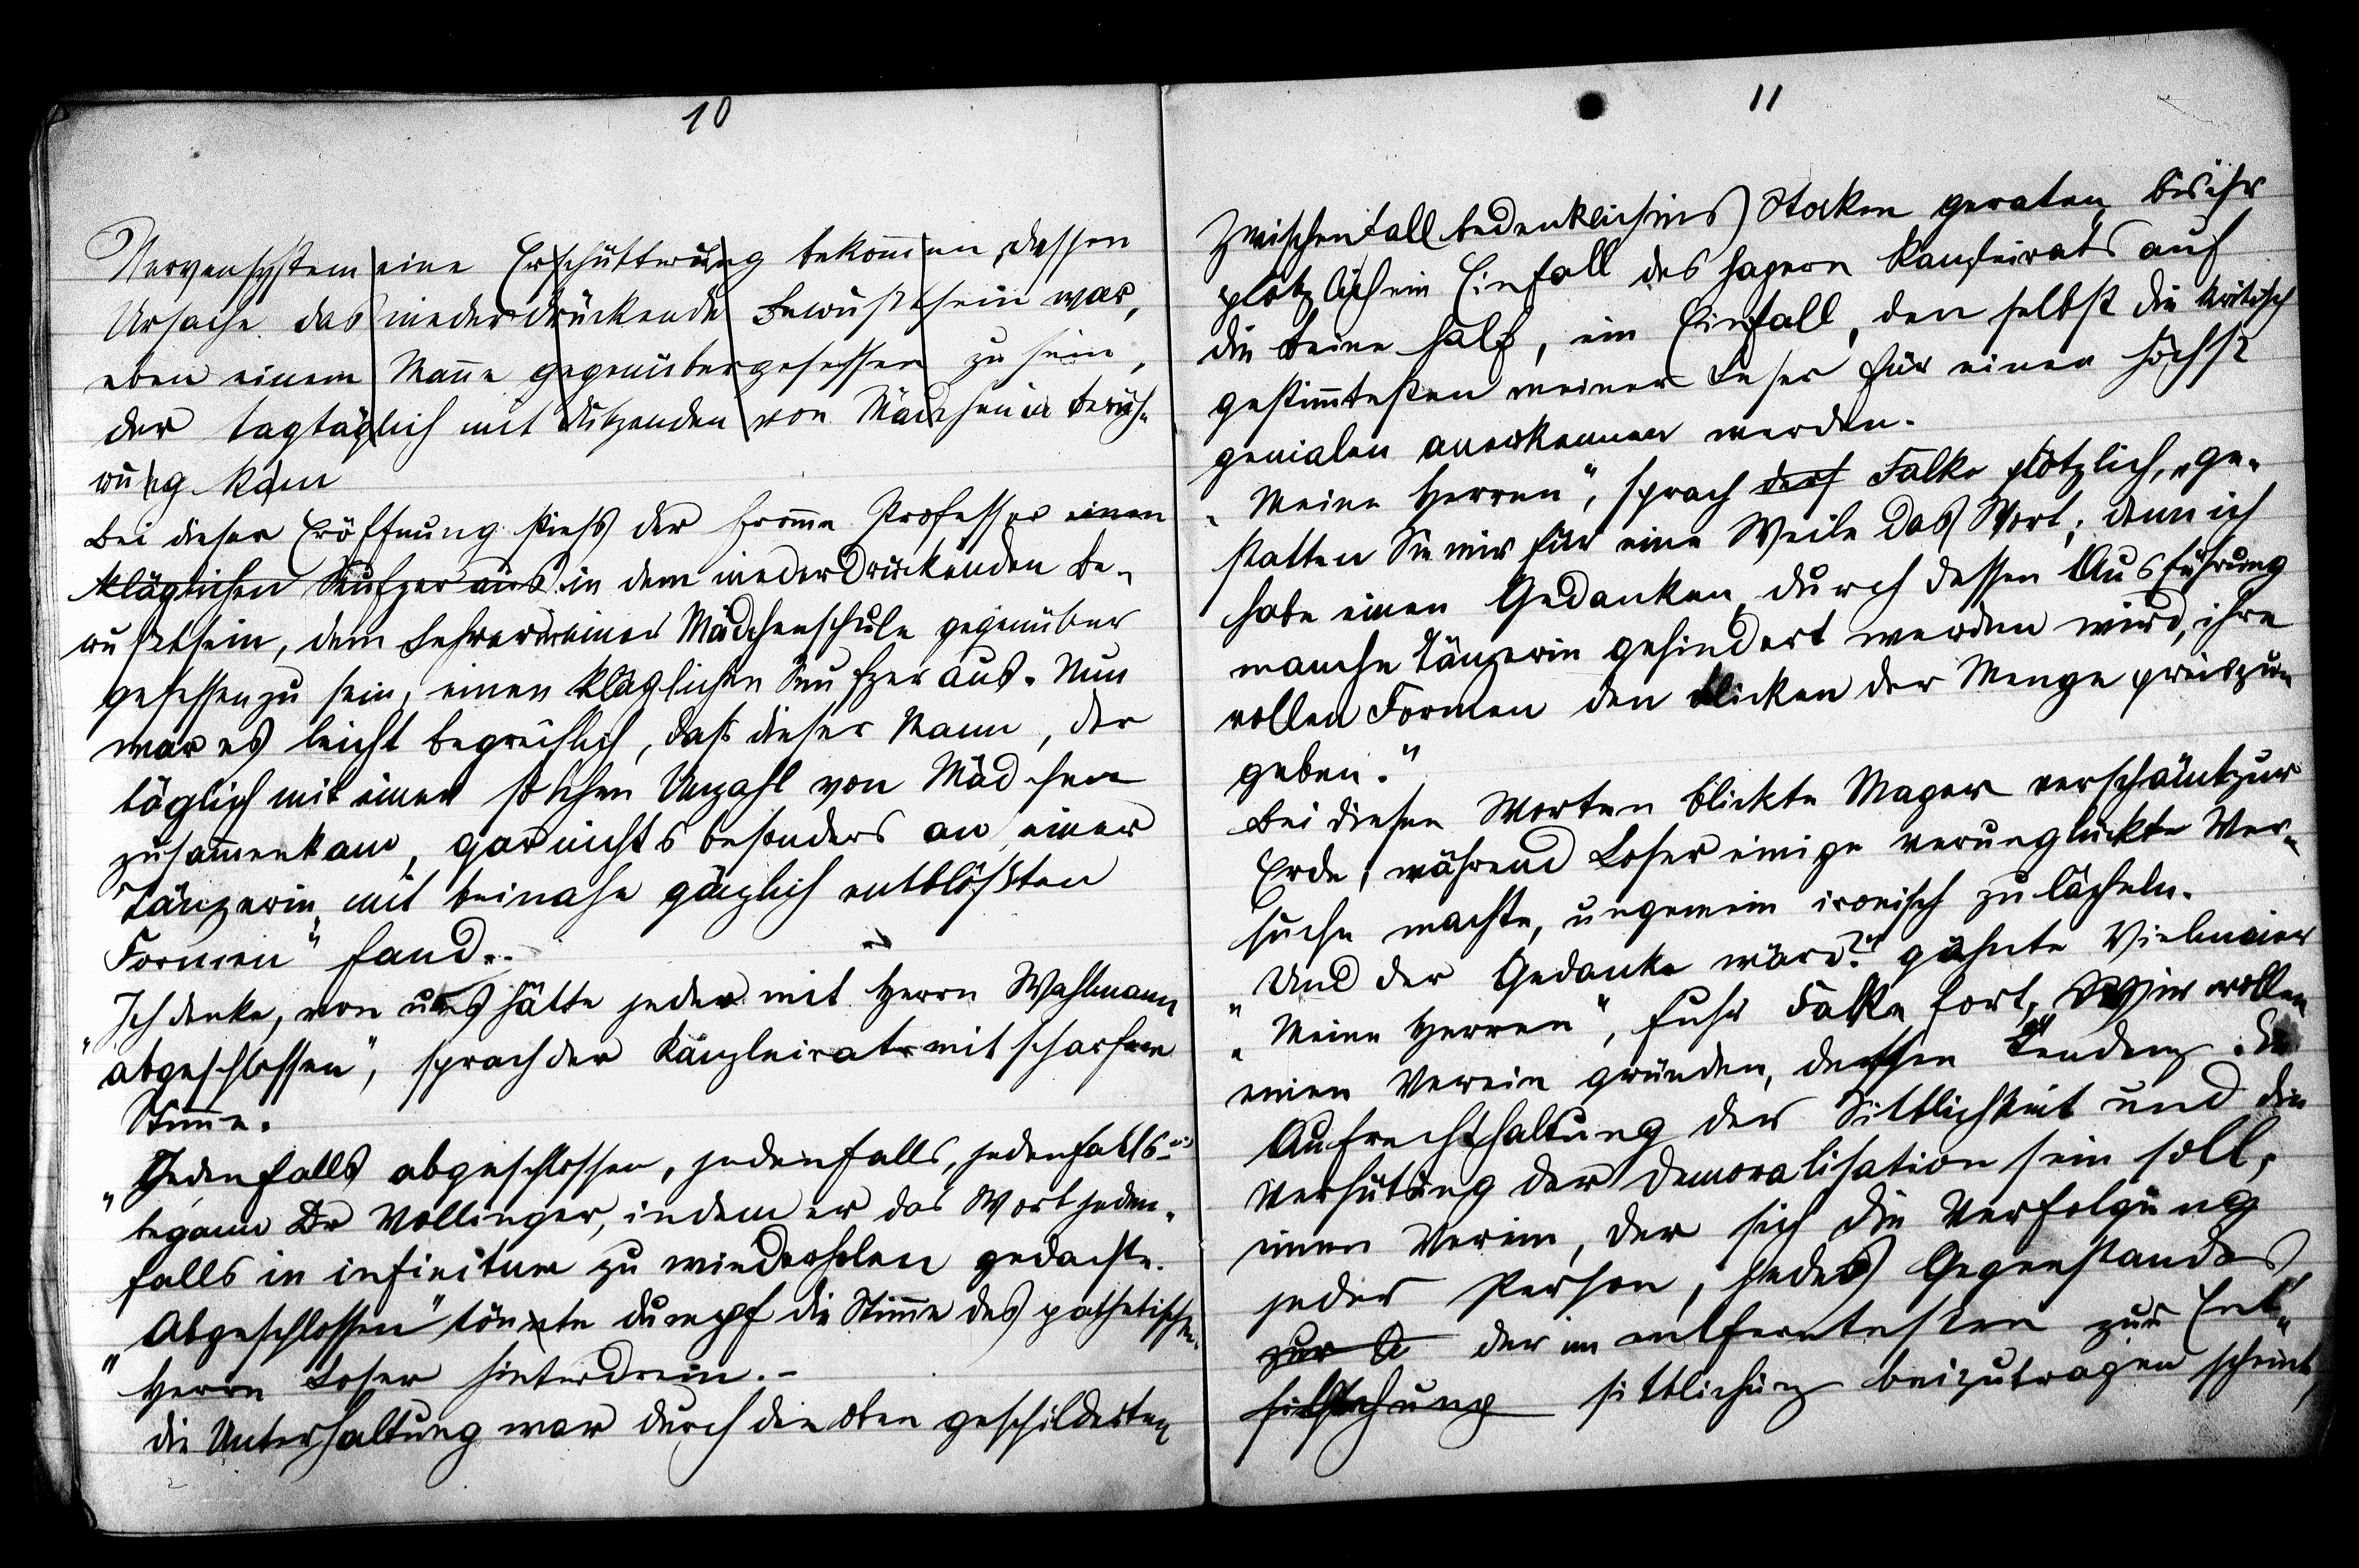 10
Nervensystem eine Erschütterung bekommen, dessen
Ursache das niederdrückende Bewußtsein war,
eben einem Manne gegenübergesessen zu sein,
der tagtäglich mit Dutzenden von Mädchen in Berüh-
rung kam
Bei dieser Eröffnung stiess der fromme Professor einen
kläglichen Seufzer aus in dem niederdrückenden Be-
wußtsein, dem Lehrer einer Mädchenschule gegenüber
gesessen zu sein, einen kläglichen Seufzer aus. Nun
war es leicht begreiflich, daß dieser Mann, der
täglich mit einer solchen Unzahl von Mädchen
zusammenkam, gar nichts besonders an einer
„Tänzerin mit beinahe gänzlich entblößten
Formen“ fand.
„Ich denke, von uns hätte jeder mit Herrn Wahlmann
abgeschlossen“, sprach der Kanzleirat mit scharfer
Stimme.
„Jedenfalls abgeschlossen, jedenfalls, jedenfalls –“
begann Dr Vollinger, indem er das Wort jeden-
falls in infinitum zu wiederholen gedachte.
„Abgeschlossen“ tönte dumpf die Stimme des pathetischen
Herrn Loser hinterdrein. –
Die Unterhaltung war durch die oben geschilderten
11
Zwischenfall bedenklich ins Stocken geraten, bis ihr
plötzlich ein Einfall des hagern Kanzleirats auf
die Beine half, ein Einfall, den selbst die kritisch
gestimmtesten meiner Leser für einen höchst
genialen anerkennen werden.
„Meine Herren“, sprach Falke plötzlich, „ge-
statten Sie mir für eine Weile das Wort; denn ich
habe einen Gedanken, durch dessen Ausführung
manche Tänzerin gehindert werden wird, ihre
vollen Formen den Blicken der Menge preiszu-
geben.“
Bei diesen Worten blickte Mager verschämt zur
Erde, während Loser einige verunglückte Ver-
suche machte, ungemein ironisch zu lächeln.
„Und der Gedanke wäre?“ gähnte Vielmeier
„Meine Herren“, fuhr Falke fort, „Wir wollen
einen Verein gründen, dessen Tendenz die
Aufrechthaltung der Sittlichkeit und die
Verhütung der Demoralisation sein soll,
einen Verein, der sich die Verfolgung
jeder Person, jedes Gegenstandes
zur E der im entferntesten zur Ent-
sittlichung beizutragen scheint,